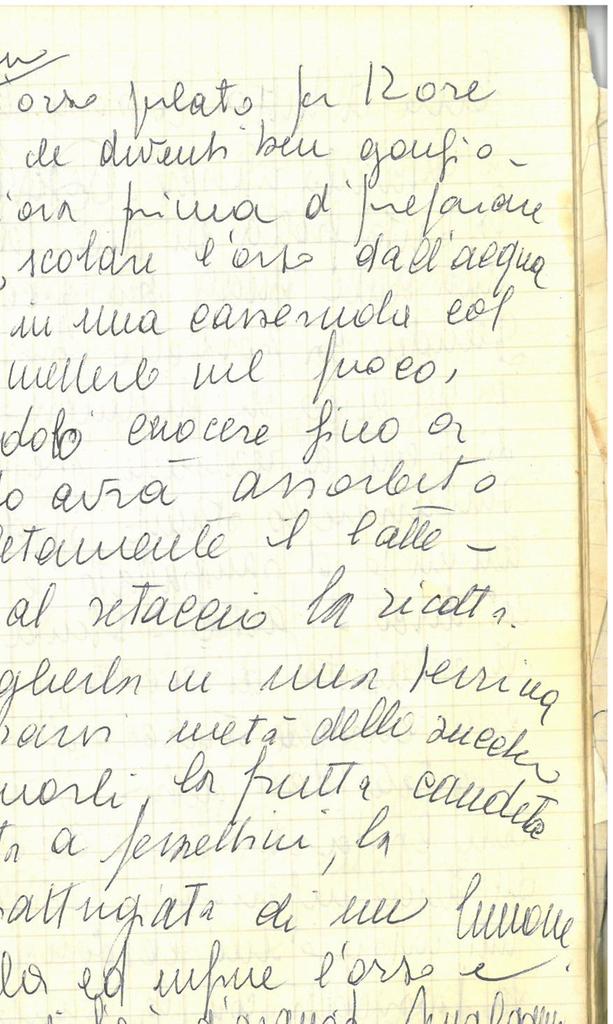 orzo pelato per 12 ore
che diventi ben gonfio -
'ora prima di preparare
, scolare l'orzo dall'acqua
in una casseruola col
metterlo sul fuoco,
dolo cuocere fino a
do avrà assorbito
letamente il latte -
al setaccio la ricotta.
glierla in una terrina
metà dello zucche
uorli, la frutta candita
ta a pezzettini, la
rattugiata di un limone
la ed infine l'orzo e
d'arancio